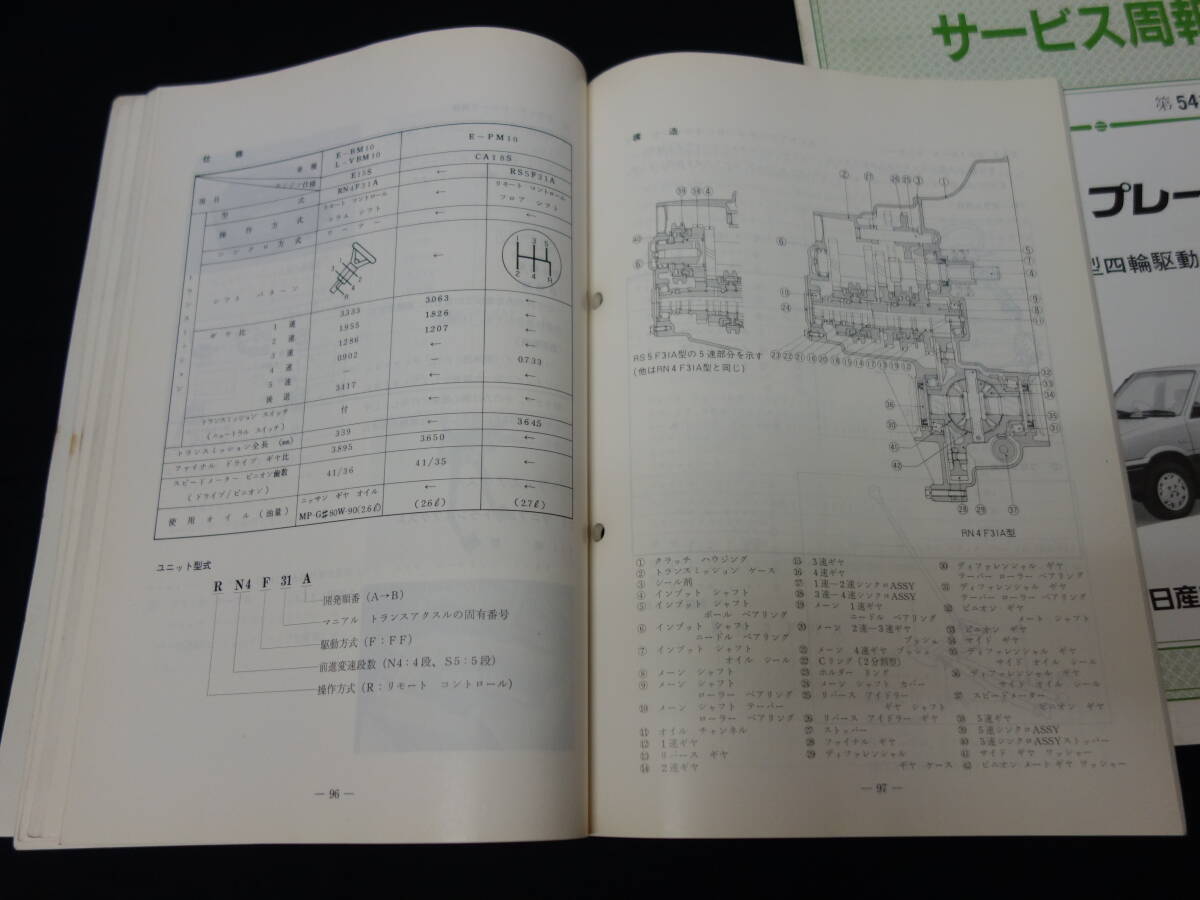 仕様
車種
E-BM10
L-VBM10
E-PM10
エンジン仕様
E15S
CA18S
項目
型式
RN4F31A
←
RS5F31A
操作方式
リモート コントロール
コラム シフト
←
リモート コントロール
フロア シフト
シンクロ方式
ワーナー
←
←
トランスミッション
シフト パターン
←
1 3 5
2 4 R
ギヤ比
1速
3.333
3.063
←
2速
1.955
1.826
←
3速
1.286
1.207
←
4速
0.902
←
←
5速
—
—
0.733
後退
3.417
←
←
トランスミッション スイッチ
(ニュートラル スイッチ)
付
←
←
トランスミッション全長 (mm)
339
←
3645
ファイナル ドライブ ギヤ比
3.895
3.650
←
スピードメーター ピニオン歯数
(ドライブ/ピニオン)
41/36
41/35
←
使用オイル (油量)
ニッサン ギヤ オイル
MP-G♯80W-90(2.6ℓ)
←
(2.6ℓ)
←
(2.7ℓ)
ユニット型式
R N4 F 31 A
開発順番 (A→B)
マニアル トランスアクスルの固有番号
駆動方式 (F:FF)
前進変速段数 (N4:4段、S5:5段)
操作方式 (R:リモート コントロール)
— 96 —
構造
RS5F31A型の5速部分を示す
(他はRN4F31A型と同じ)
RN4F31A型
① クラッチ ハウジング
② トランスミッション ケース
③ シール剤
④ インプット シャフト
⑤ インプット シャフト
ボール ベアリング
⑥ インプット シャフト
ニードル ベアリング
⑦ インプット シャフト
オイル シール
⑧ メーン シャフト
⑨ メーン シャフト
ローラー ベアリング
⑩ メーン シャフト テーパー
ローラー ベアリング
⑪ オイル チャンネル
⑫ 1速ギヤ
⑬ リバース ギヤ
⑭ 2速ギヤ
⑮ 3速ギヤ
⑯ 4速ギヤ
⑰ 1速−2速シンクロASSY
⑱ 3速−4速シンクロASSY
⑲ メーン 1速ギヤ
ニードル ベアリング
⑳ メーン 2速−3速ギヤ
ブッシュ
㉑ メーン 4速ギヤ ブッシュ
㉒ Cリング (2分割型)
㉓ ホルダー リング
㉔ メーン シャフト カバー
㉕ リバース アイドラー
ギヤ シャフト
㉖ リバース アイドラー ギヤ
㉗ ストッパー
㉘ ファイナル ギヤ
㉙ ディファレンシャル
ギヤ ケース
㉚ ディファレンシャル ギヤ
テーパー ローラー ベアリング
㉛ ディファレンシャル ギヤ
テーパー ローラー ベアリング
㉜ ピニオン ギヤ
メート シャフト
㉝ ピニオン ギヤ
㉞ サイド ギヤ
㉟ ディファレンシャル ギヤ
サイド オイル シール
㊱ ディファレンシャル ギヤ
サイド オイル シール
㊲ スピードメーター
ピニオン ギヤ
㊳ 5速ギヤ
㊴ 5速シンクロASSY
㊵ 5速シンクロASSYストッパー
㊶ サイド ギヤ ワッシャー
㊷ ピニオン メート ギヤ ワッシャー
— 97 —
サービス周報
第54
プレー
型四輪駆動
日産